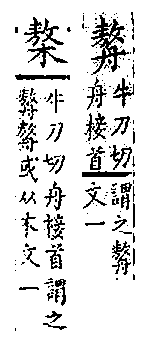 牛刀切
舟接首
謂之
文一
牛刀切舟接首謂之
或从木文一